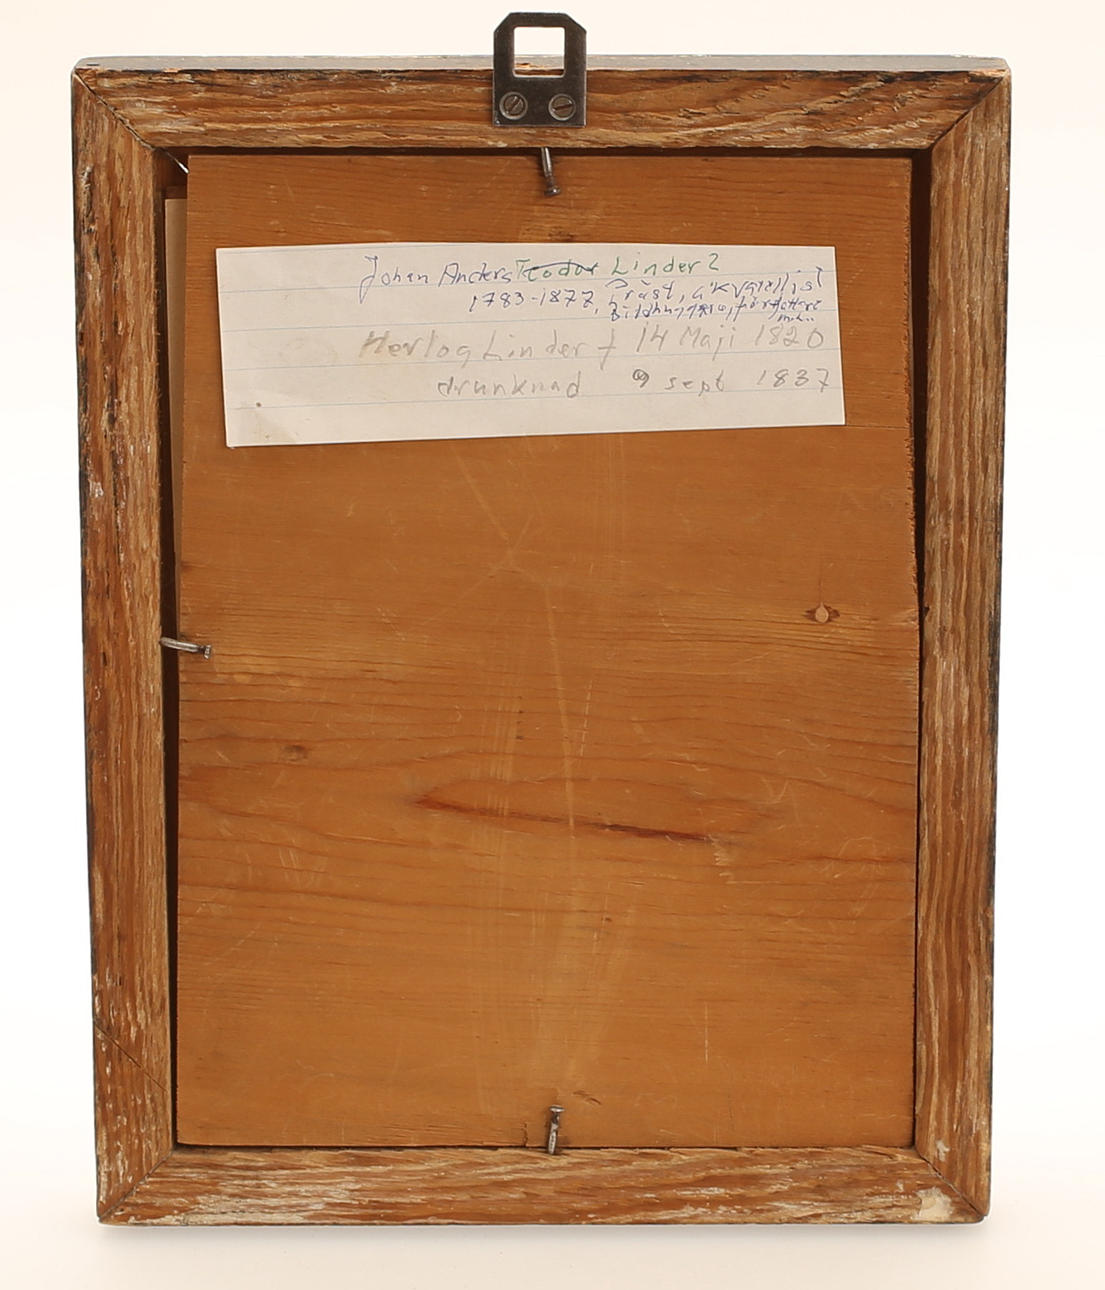 Johan Anders Teodor Linder?
1783-1877, Präst, akvarellist
författare
m.m.
Hertog Linder f 14 Maji 1820
drunknad 9 sept 1837